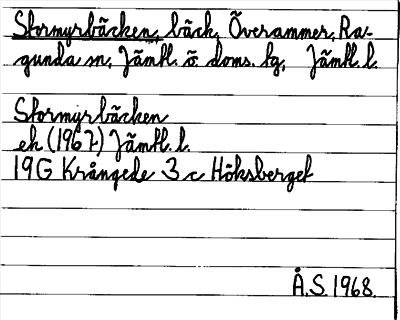 Stormyrbäcken, bäck, Överammer, Ra-
gunda sn, Jämtl. ö. doms. hg, Jämtl. l.
Stormyrbäcken
ek (1967) Jämtl. l.
19G Krångede 3 c Höksberget
Å.S. 1968.